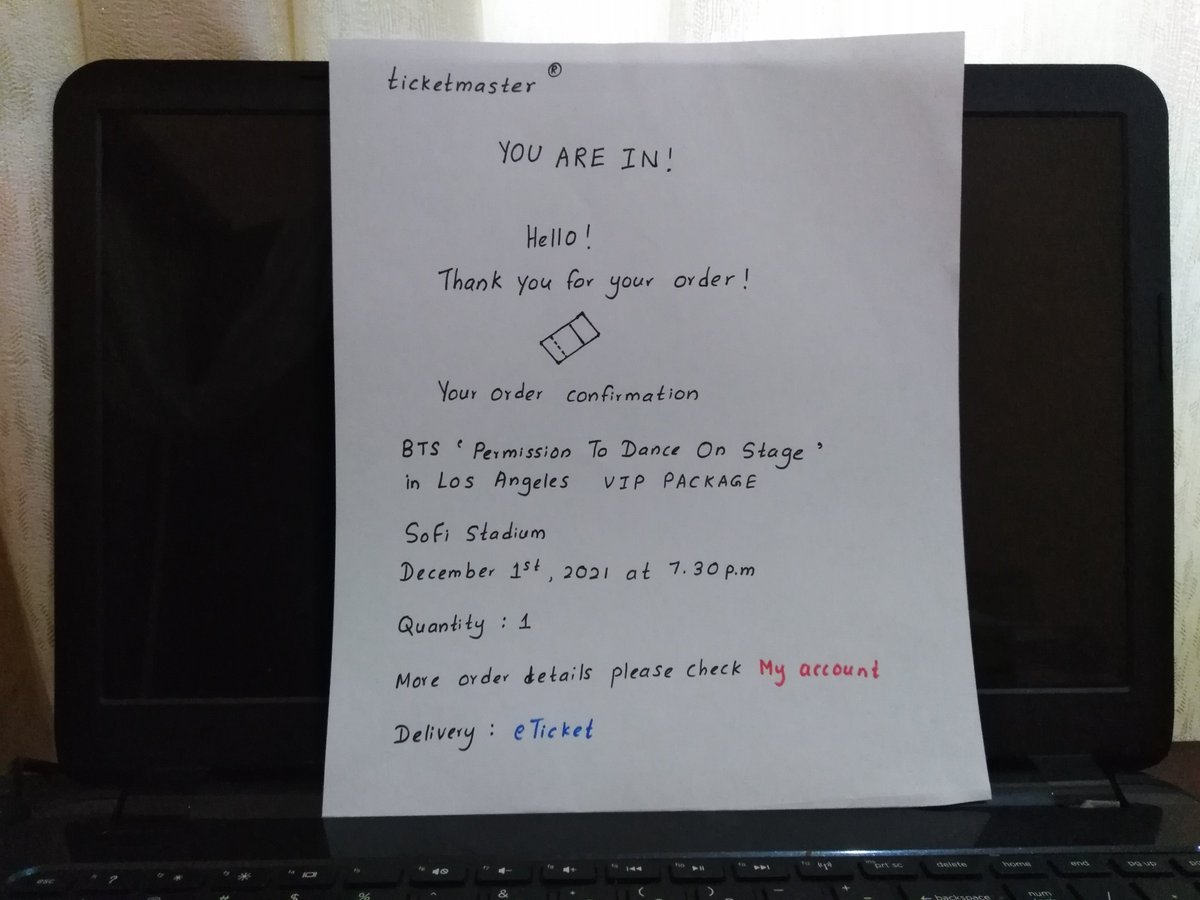 ticketmaster ®
YOU ARE IN!
Hello!
Thank you for your order!
Your order confirmation
BTS ‘Permission To Dance On Stage’
in Los Angeles VIP PACKAGE
SoFi Stadium
December 1st, 2021 at 7.30 p.m
Quantity : 1
More order details please check My account
Delivery : eTicket
esc ? prt sc delete home end pg up
# $ % & * ( ) - + backspace num